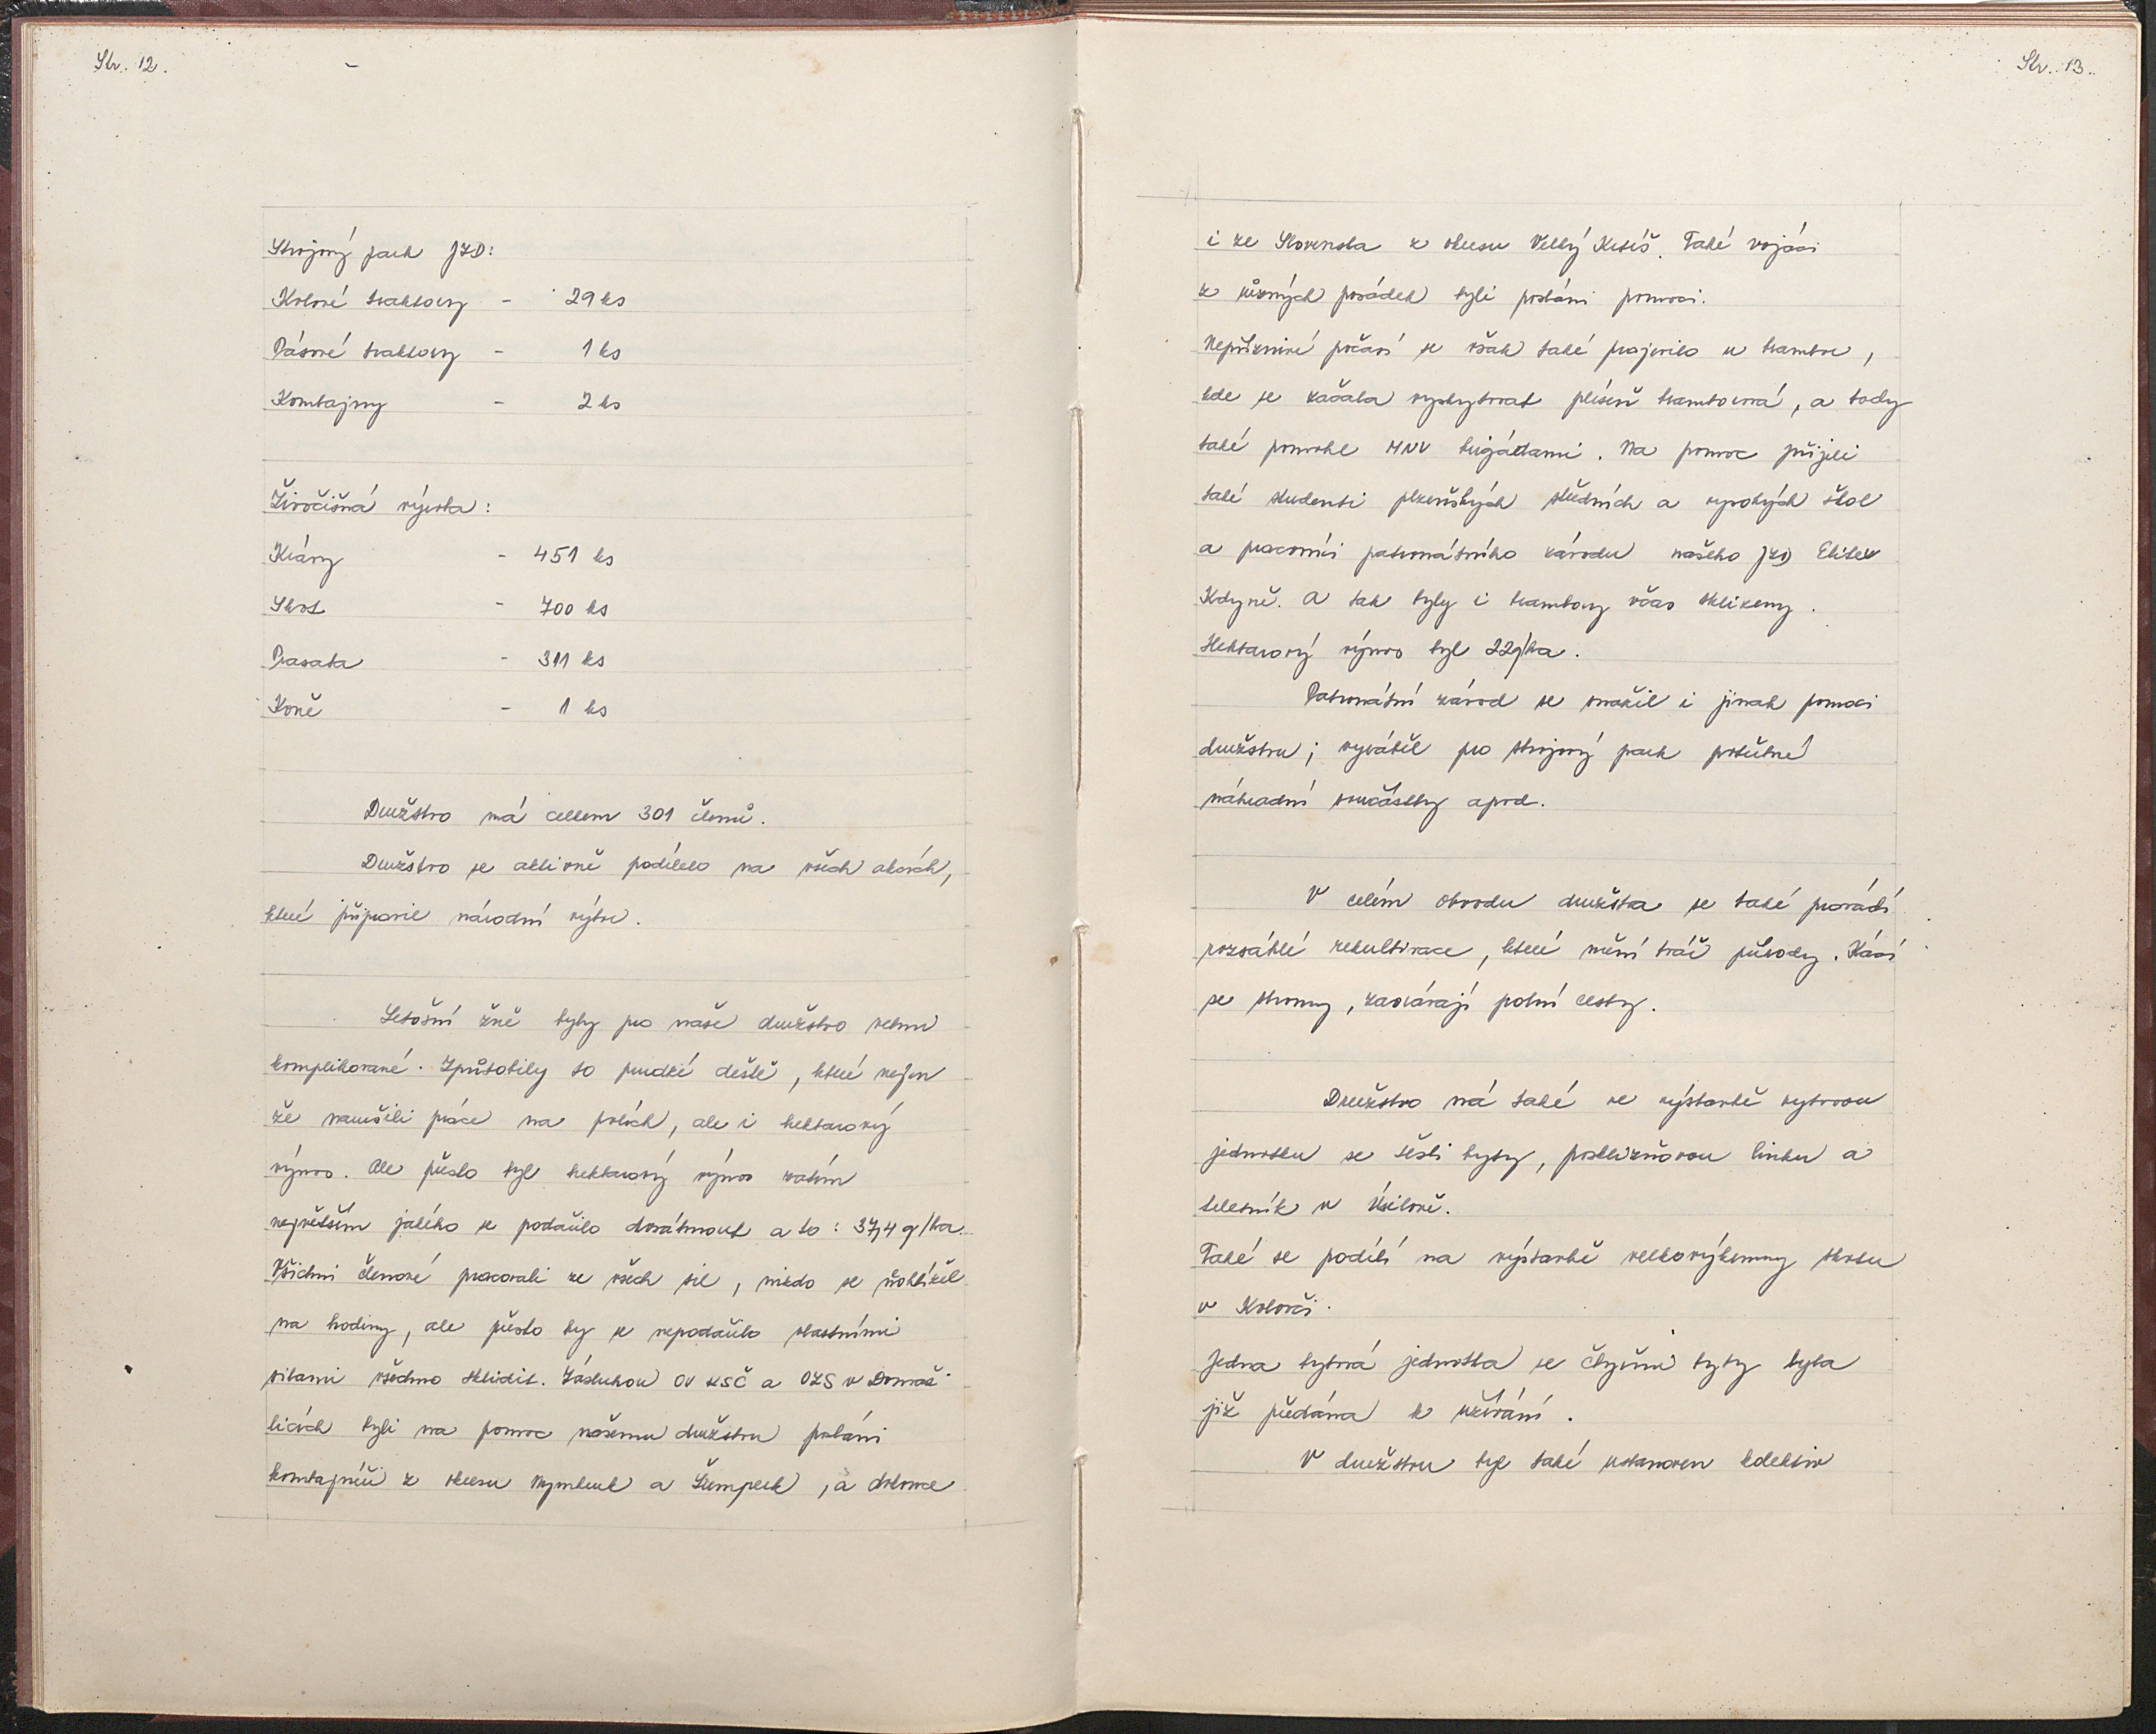 Str. 12.
Strojový park JZD:
Kolové traktory - 29 ks
Pásové traktory - 1 ks
Kombajny - 2 ks
Živočišná výroba:
Krávy - 451 ks
Skot - 700 ks
Prasata - 311 ks
Koně - 1 ks
Družstvo má celkem 301 členů.
Družstvo se aktivně podílelo na všech akcích,
které připravil národní výbor.
Letošní žně byly pro naše družstvo velmi
komplikované. Způsobily to prudké deště, které nejen
že narušili práce na polích, ale i hektarový
výnos. Ale přesto byl hektarový výnos zatím
největším jakého se podařilo dosáhnout a to: 37,4 q/ha.
Všichni členové pracovali ze všech sil, nikdo se neohlížel
na hodiny, ale přesto by se nepodařilo vlastními
silami všechno sklidit. Zásluhou OV KSČ a OZS v Domaž-
licích byli na pomoc našemu družstvu posláni
kombajnéři z okresu Nymburk a Šumperk, a dokonce
Str. 13.
i ze Slovenska z okresu Velký Krtíš. Také vojáci
z různých posádek byli posláni pomoci.
Nepříznivé počasí se však také projevilo u brambor,
kde se začala vyskytovat plíseň bramborová, a tady
také pomohl MNV brigádami. Na pomoc přijeli
také studenti plzeňských středních a vysokých škol
a pracovníci patronátního závodu našeho JZD Elitex
Kdyně. A tak byly i brambory včas sklizeny.
Hektarový výnos byl 22q/ha.
Patronátní závod se snažil i jinak pomoci
družstvu; vyráběl pro strojový park potřebné
náhradní součástky apod.
V celém obvodu družstva se také provádí
rozsáhlé rekultivace, které mění tvář přírody. Kácí
se stromy, zaorávají polní cesty.
Družstvo má také ve výstavbě bytovou
jednotku se šesti byty, posklizňovou linku a
teletník v Úsilově.
Také se podílí na výstavbě velkovýkrmny skotu
v Kolovči.
Jedna bytová jednotka se čtyřmi byty byla
již předána k užívání.
V družstvu byl také ustanoven kolektiv